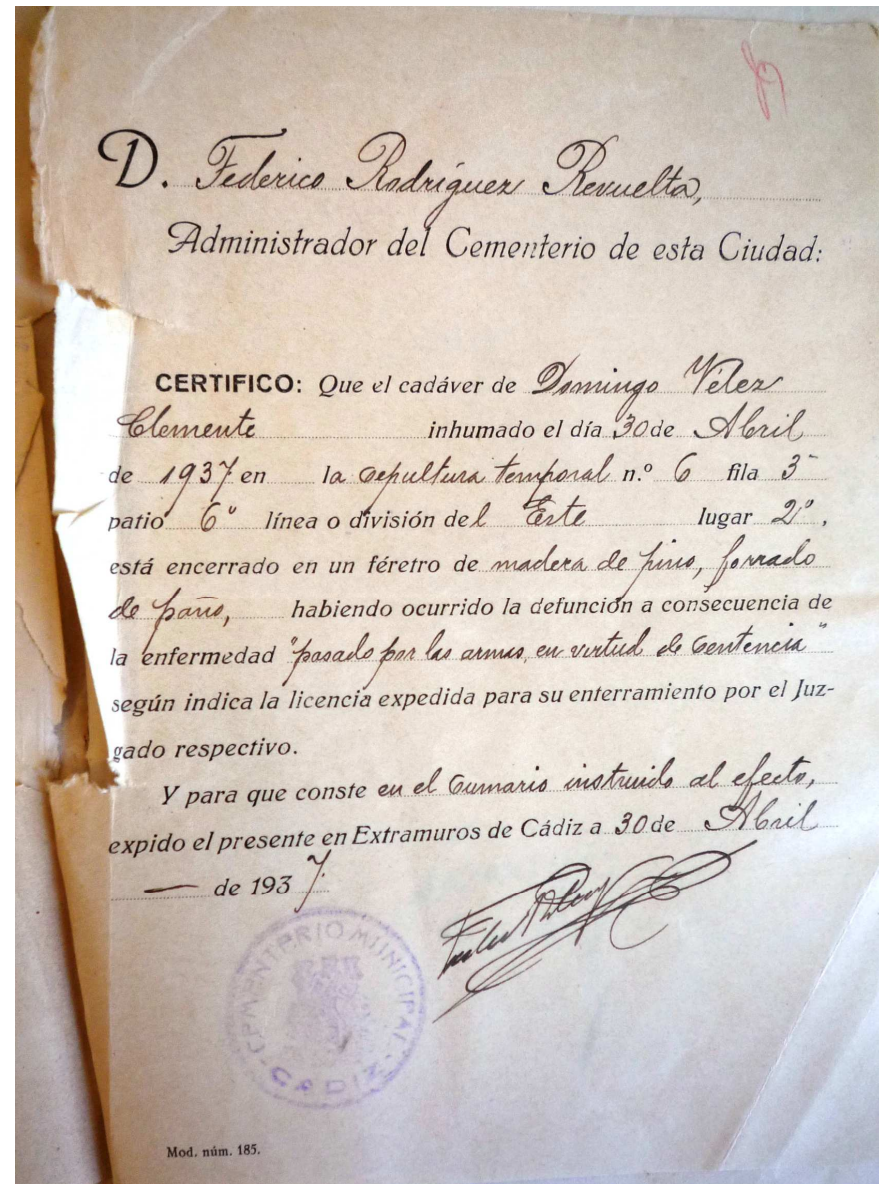 D. Federico Rodríguez Revuelta,
Administrador del Cementerio de esta Ciudad:
CERTIFICO: Que el cadáver de Domingo Vélez
Clemente inhumado el día 30 de Abril
de 1937 en la sepultura temporal n.º 6 fila 3ª
patio 6º línea o división del Este lugar 2º,
está encerrado en un féretro de madera de pino, forrado
de paño, habiendo ocurrido la defunción a consecuencia de
la enfermedad "pasado por las armas, en virtud de sentencia"
según indica la licencia expedida para su enterramiento por el Juz-
gado respectivo.
Y para que conste en el sumario instruido al efecto,
expido el presente en Extramuros de Cádiz a 30 de Abril
— de 1937.
CEMENTERIO MUNICIPAL
CADIZ
Mod. núm. 185.